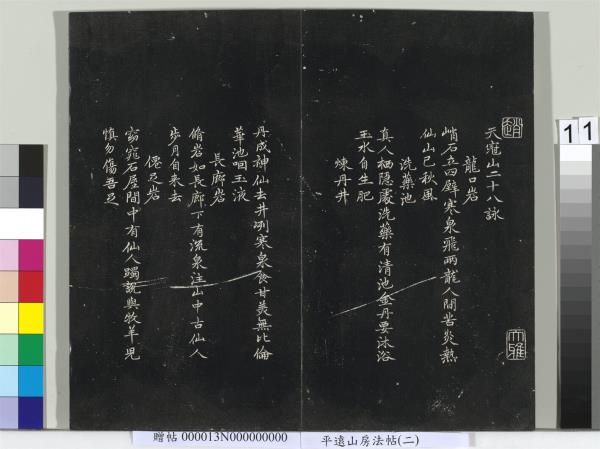 天冠山二十八詠
龍口岩
峭石立四壁寒泉飛兩龍人間苦炎熱
仙山已秋風
洗藥池
真人栖隱處洗藥有清池金丹要沐浴
玉水自生肥
煉丹井
丹成神仙去井冽寒泉食甘美無比倫
華池咽玉液
長廊岩
脩岩如長廊下有流泉注山中古仙人
步月自來去
僊足岩
窈窕石屋間中有仙人躅說與牧羊兒
慎勿傷吾足
趙
大雅
11
贈帖 000013N000000000
平遠山房法帖(二)